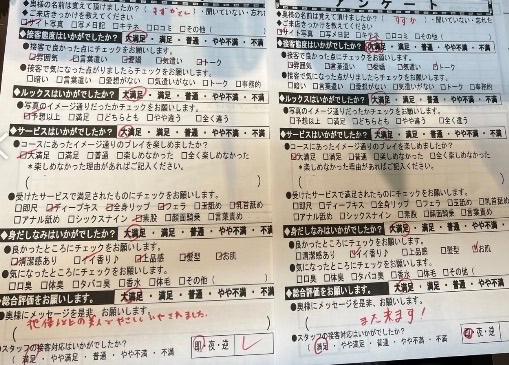 アンケート
●奥様の名前は覚えて頂けましたか?
：聞いていない・忘れた
●ご来店きっかけを教えてください
□サイト写真 □写メ日記 □キテネ □口コミ □その他（
◆接客態度はいかがでしたか？ 大満足 ・ 満足 ・ 普通 ・ やや不満 ・ 不満
●接客で良かった点にチェックをお願いします。
□雰囲気 □言葉遣い □愛嬌 □気遣い □トーク
●接客で気になった点がありましたらチェックをお願いします。
□暗い □言葉遣い □愛想がない □気遣いがない □トーク □事務的
◆ルックスはいかがでしたか？ 大満足 ・ 満足 ・ 普通 ・ やや不満 ・ 不満
●写真のイメージ通りだったかチェックをお願いします。
□予想以上 □満足 □どちらとも □やや違う □全く違う
◆サービスはいかがでしたか？ 大満足 ・ 満足 ・ 普通 ・ やや不満 ・ 不満
●コースにあったイメージ通りのプレイを楽しめましたか？
□大満足 □満足 □普通 □楽しめなかった □全く楽しめなかった
＊楽しめなかった理由があればご記入ください。
（ ）
●受けたサービスで満足されたものにチェックをお願いします。
□即尺 □ディープキス □全身リップ □フェラ □玉舐め □乳首舐め
□アナル舐め □シックスナイン □素股 □顔面騎乗 □言葉責め
◆身だしなみはいかがでしたか？ 大満足 ・ 満足 ・ 普通 ・ やや不満 ・ 不満
●良かったところにチェックをお願いします。
□清潔感あり □イイ香り♪ □上品感 □髪型 □お肌
●気になったところにチェックをお願いします。
□口臭 □体臭 □タバコ臭 □香水 □体毛 □その他（ ）
◆総合評価をお願いします。 大満足 ・ 満足 ・ 普通 ・ やや不満 ・ 不満
●奥様にメッセージを是非、お願いします。
●スタッフの接客対応はいかがでしたか？
満足 ・ やや満足 ・ 普通 ・ やや不満 ・ 不満
即・夜・逆
●奥様の名前は覚えて頂けましたか？
：聞いていない・忘れた
●ご来店きっかけを教えてください
□サイト写真 □写メ日記 □キテネ □口コミ □その他（
◆接客態度はいかがでしたか？ 大満足 ・ 満足 ・ 普通 ・ やや不満 ・ 不満
●接客で良かった点にチェックをお願いします。
□雰囲気 □言葉遣い □愛嬌 □気遣い □トーク
●接客で気になった点がありましたらチェックをお願いします。
□暗い □言葉遣い □愛想がない □気遣いがない □トーク □事務的
◆ルックスはいかがでしたか？ 大満足 ・ 満足 ・ 普通 ・ やや不満 ・ 不満
●写真のイメージ通りだったかチェックをお願いします。
□予想以上 □満足 □どちらとも □やや違う □全く違う
◆サービスはいかがでしたか？ 大満足 ・ 満足 ・ 普通 ・ やや不満 ・ 不満
●コースにあったイメージ通りのプレイを楽しめましたか？
□大満足 □満足 □普通 □楽しめなかった □全く楽しめなかった
＊楽しめなかった理由があればご記入ください。
（
●受けたサービスで満足されたものにチェックをお願いします。
□即尺 □ディープキス □全身リップ □フェラ □玉舐め □乳首舐め
□アナル舐め □シックスナイン □素股 □顔面騎乗 □言葉責め
◆身だしなみはいかがでしたか？ 大満足 ・ 満足 ・ 普通 ・ やや不満 ・
●良かったところにチェックをお願いします。
□清潔感あり □イイ香り♪ □上品感 □髪型 □お肌
●気になったところにチェックをお願いします。
□口臭 □体臭 □タバコ臭 □香水 □体毛 □その他（
◆総合評価をお願いします。 大満足 ・ 満足 ・ 普通 ・ やや不満 ・
●奥様にメッセージを是非、お願いします。
また来ます！
●スタッフの接客対応はいかがでしたか？
満足 ・ やや満足 ・ 普通 ・ やや不満 ・ 不満
即・夜・逆